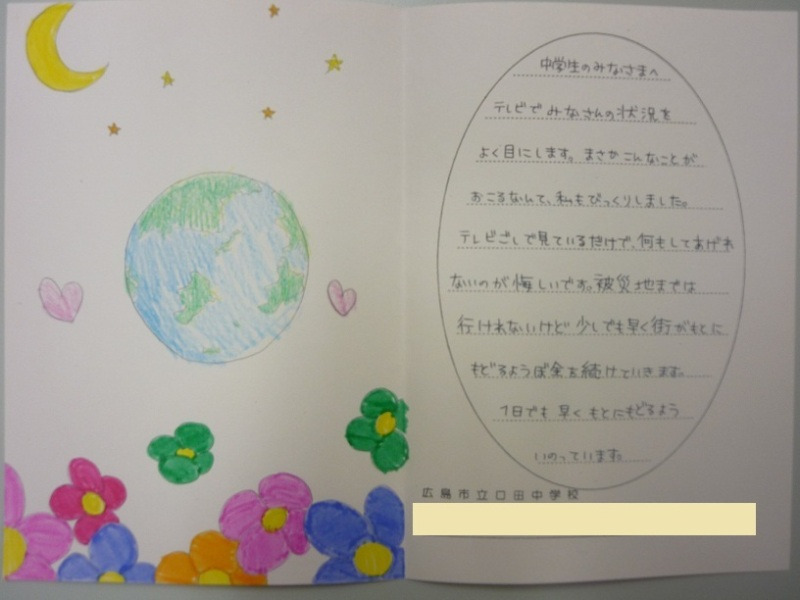 中学生のみなさまへ
テレビでみなさんの状況を
よく目にします。まさかこんなことが
おこるなんて、私もびっくりしました。
テレビごしで見ているだけで、何もしてあげれ
ないのが悔しいです。被災地までは
行けれないけど少しでも早く街がもとに
もどるようぼ金を続けていきます。
1日でも早くもとにもどるよう
いのっています。
広島市立口田中学校